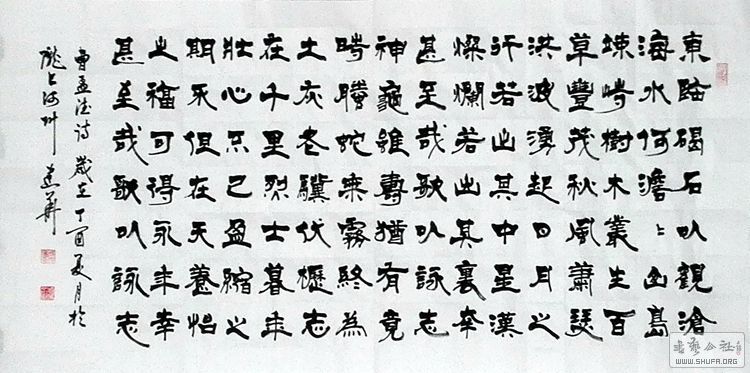 東臨碣石以觀滄
海水何澹〻山島
竦峙樹木叢生百
草豐茂秋風蕭瑟
洪波湧起日月之
行若出其中星漢
燦爛若出其裏幸
甚至哉歌以詠志
神龜雖壽猶有竟
時騰蛇乘霧終為
土灰老驥伏櫪志
在千里烈士暮年
壯心不已盈縮之
期不但在天養怡
之福可得永年幸
甚至哉歌以詠志
曹孟德詩 歲在丁酉夏月於
隴上河州
WWW.SHUFA.ORG